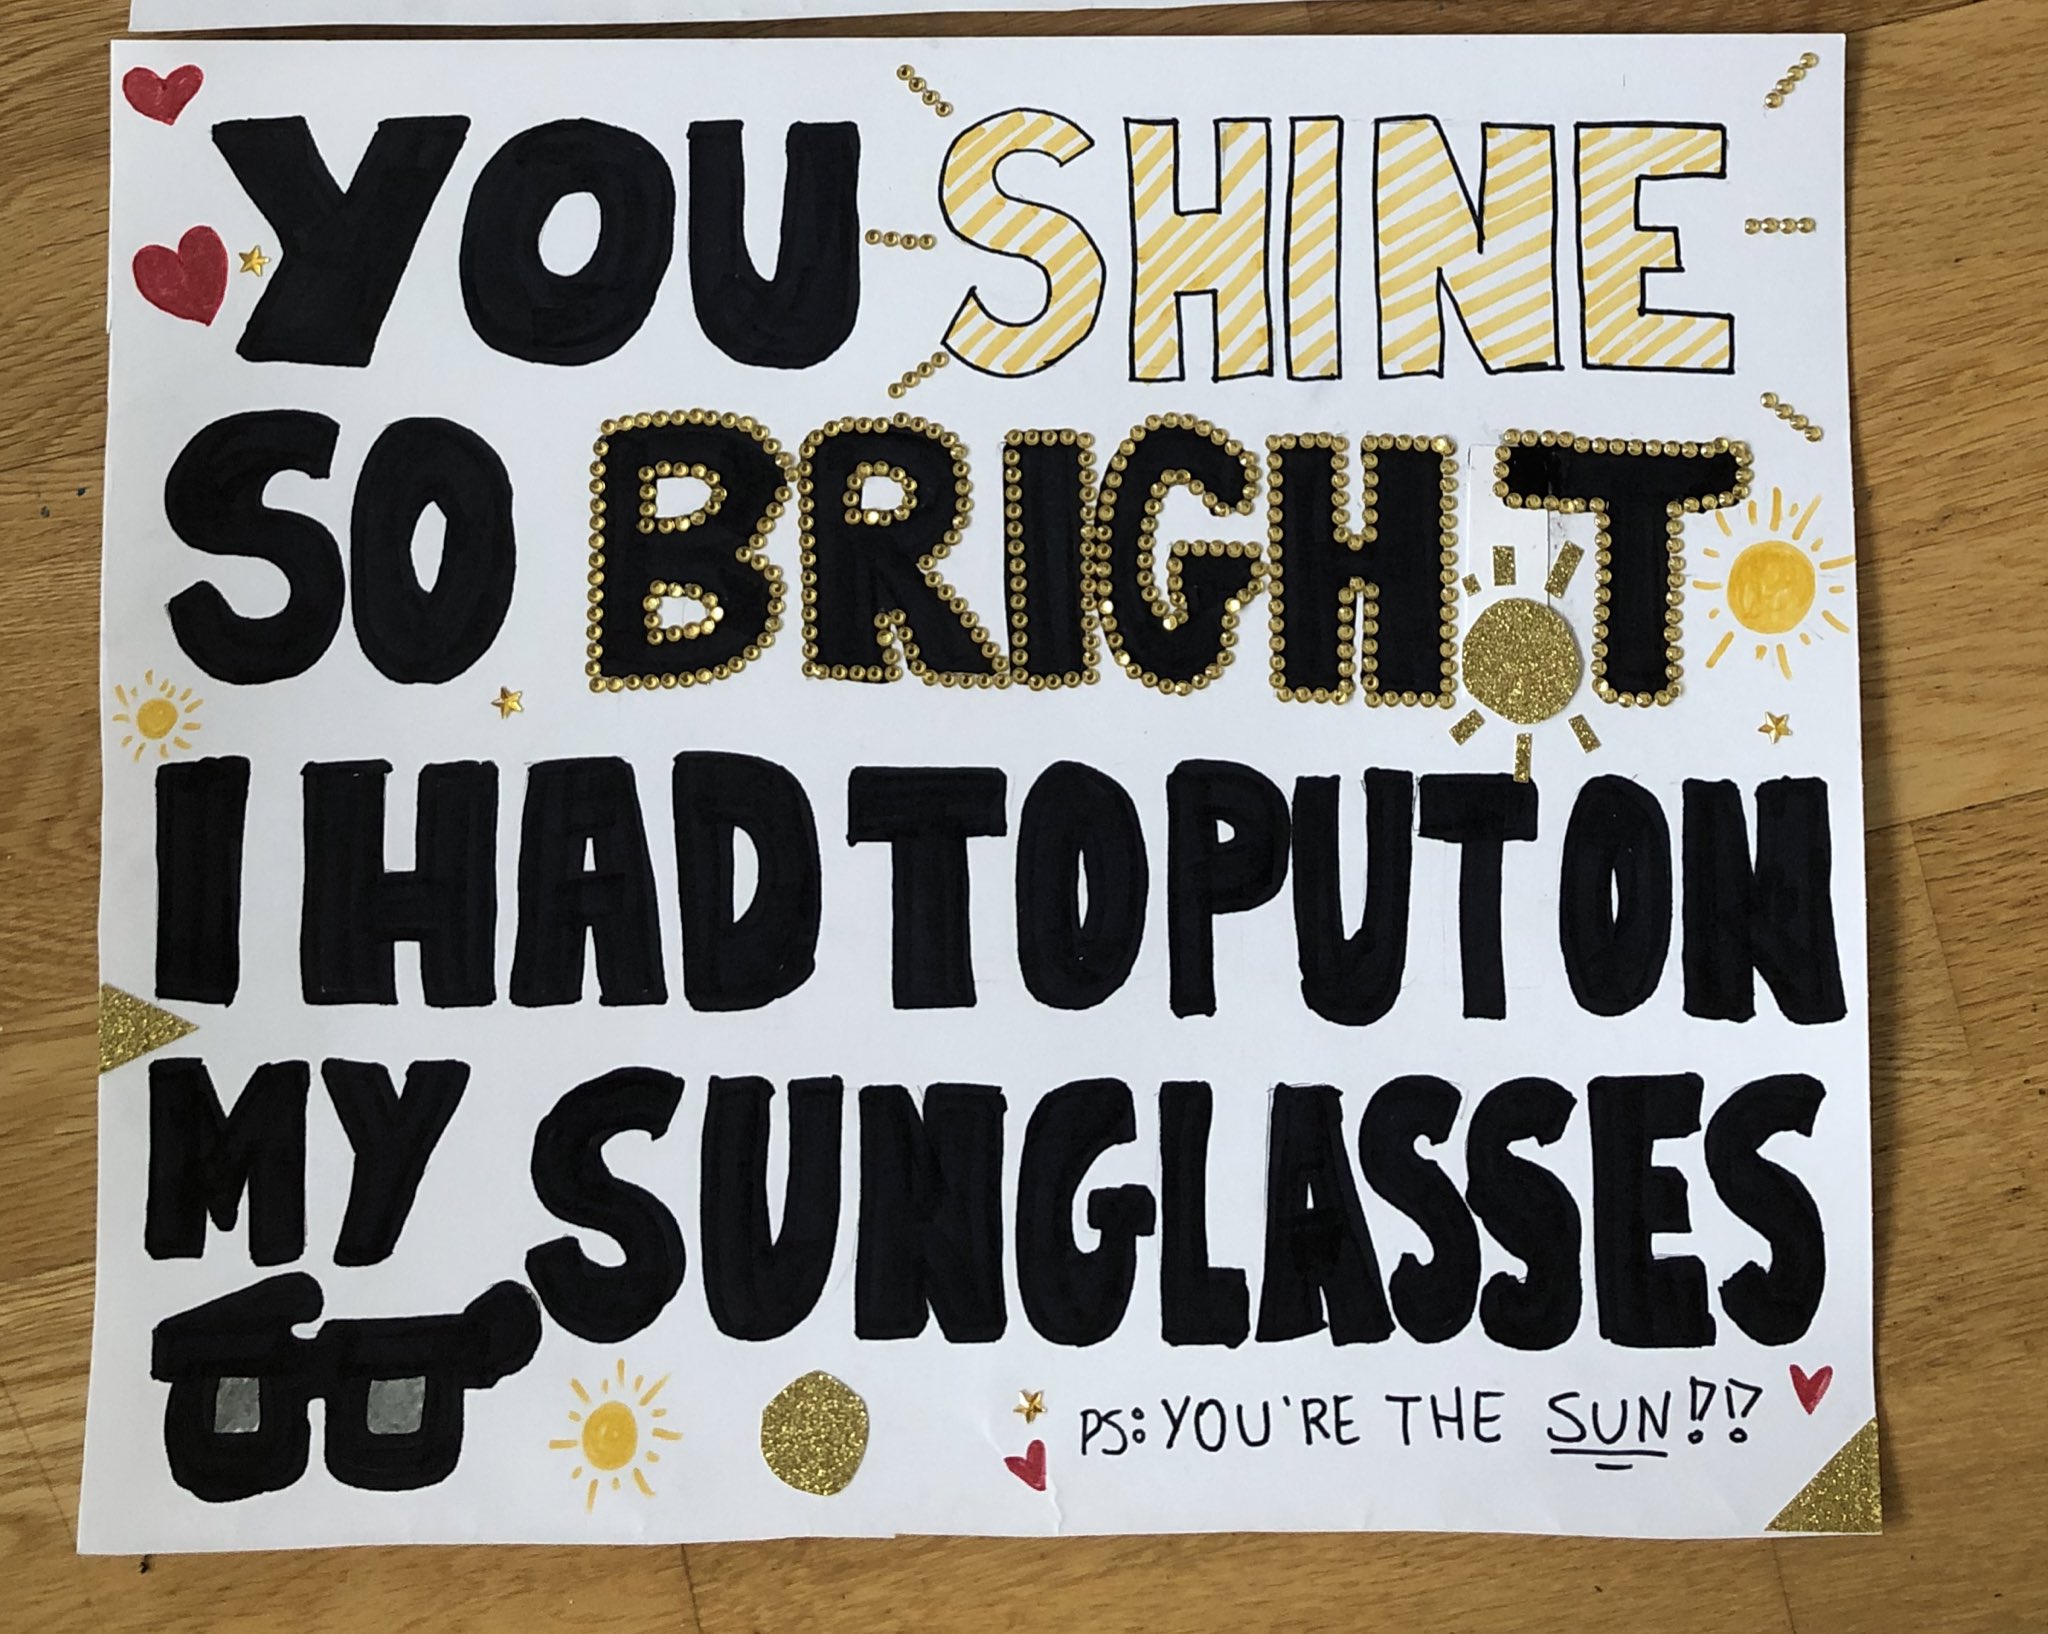 YOU SHINE
SO BRIGHT
I HAD TO PUT ON
MY SUNGLASSES
PS: YOU'RE THE SUN!!